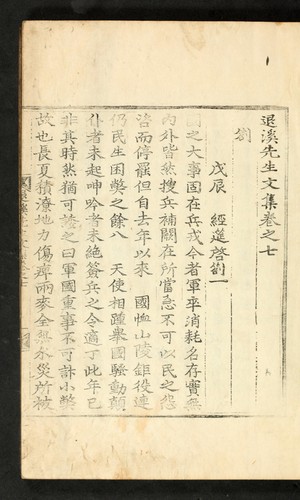 退溪先生文集卷之七
劄
戊辰 經筵啓劄一
國之大事固在兵戎今者軍卒消耗名存實無
內外皆然搜兵補闕在所當急不可以民之怨
咨而停罷但自去年以來 國恤山陵鉅役連
仍民生困弊之餘八 天使相踵擧國騷動顚
仆者未起呻吟者未絶簽兵之令適丁此年已
非其時然猶可諉之曰軍國重事不可計小弊
故也長夏積潦地力傷瘁兩麥全無水災所被